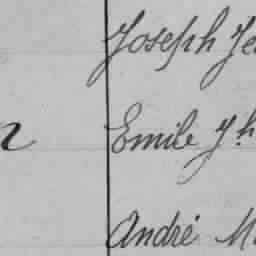 Joseph Je
Emile Jh
André M